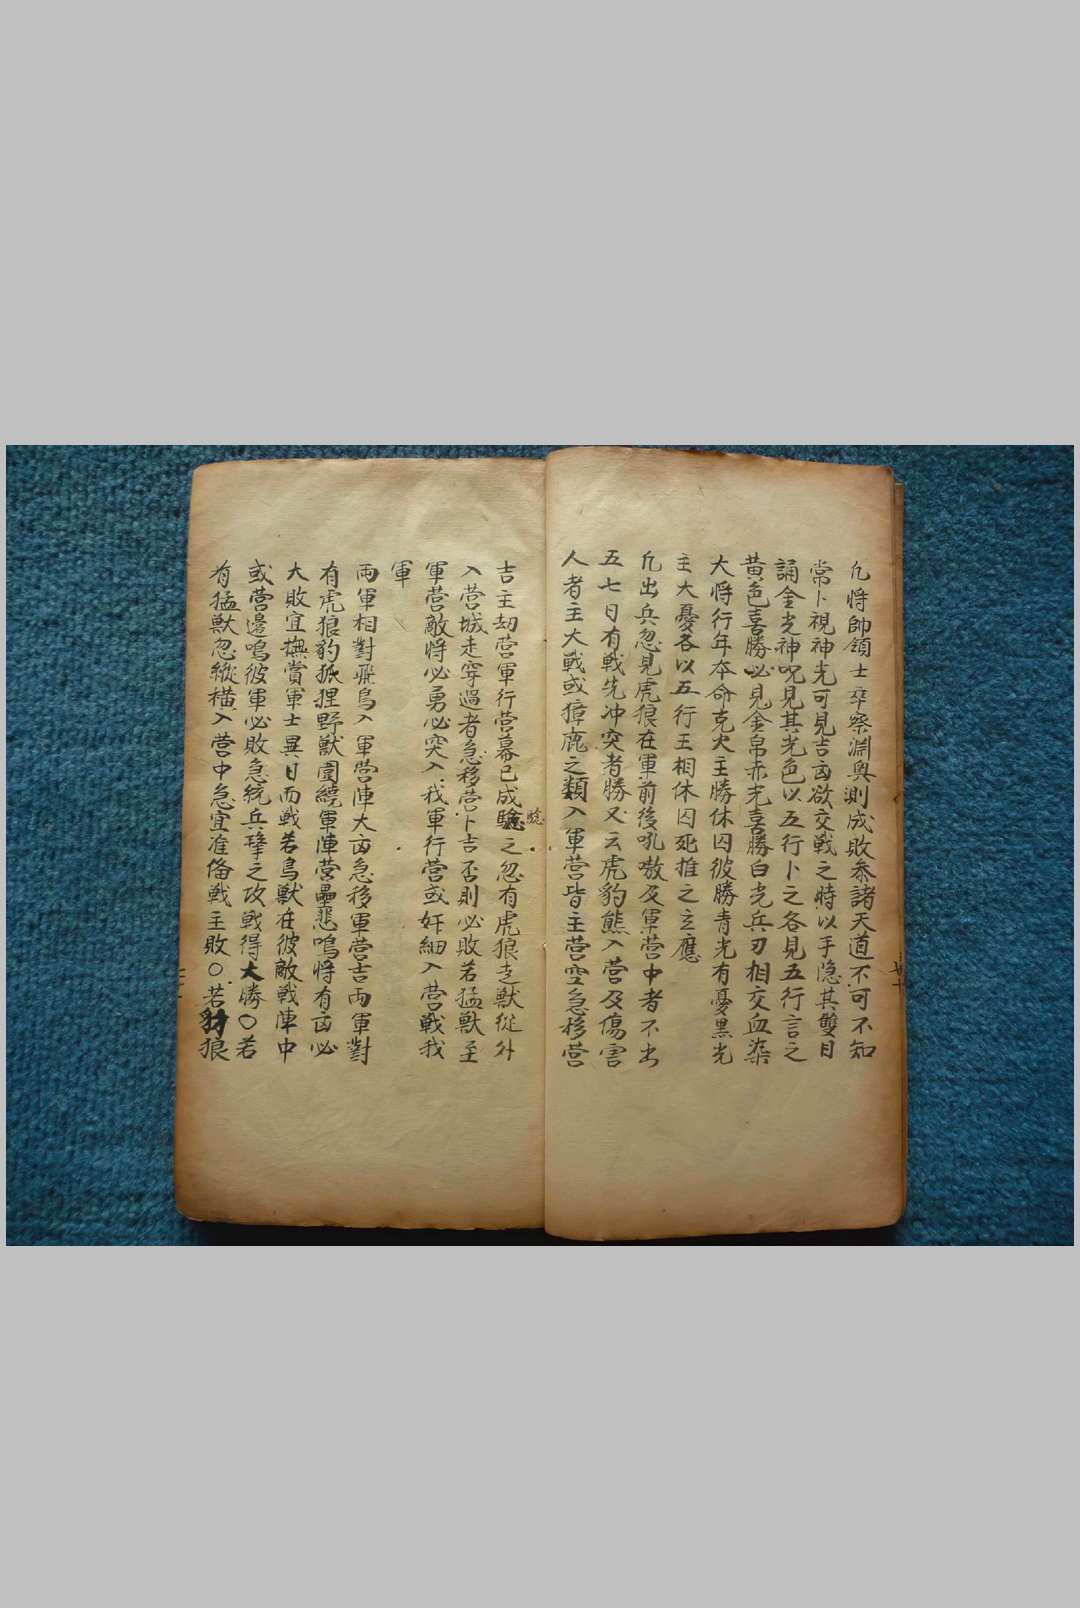 凡將帥領士卒察淵奧測成敗參諸天道不可不知
常卜視神光可見吉凶欲交戰之時以手隐其雙目
誦金光神呪見其光色以五行卜之各見五行言之
黃色喜勝必見金帛赤光喜勝白光兵刃相交血染
大將行年本命克火主勝休囚彼勝青光有憂黑光
主大憂各以五行王相休囚死推之立應
凡出兵忽見虎狼在軍前後吼嗷及軍营中者不出
五七日有戰先冲突者勝又云虎豹熊入营及傷害
人者主大戰或獐鹿之類入軍营皆主营空急移营
吉主刼营軍行营幕已成驗之忽有虎狼走獸從外
入营城走穿過者急移营卜吉否則必敗若猛獸至
軍营敵將必勇必突入我軍行营或奸細入营戰我
軍
兩軍相對飛鳥入軍营陣大凶急移軍营吉兩軍對
有虎狼豹狐狸野獸圍繞軍陣营壘悲鳴將有凶必
大敗宜撫賞軍士異日而戰若鳥獸在彼敵戰陣中
或营邊鳴彼軍必敗急統兵擊之攻戰得大勝○若
有猛獸忽縱橫入营中急宜准俻戰主敗○若豺狼